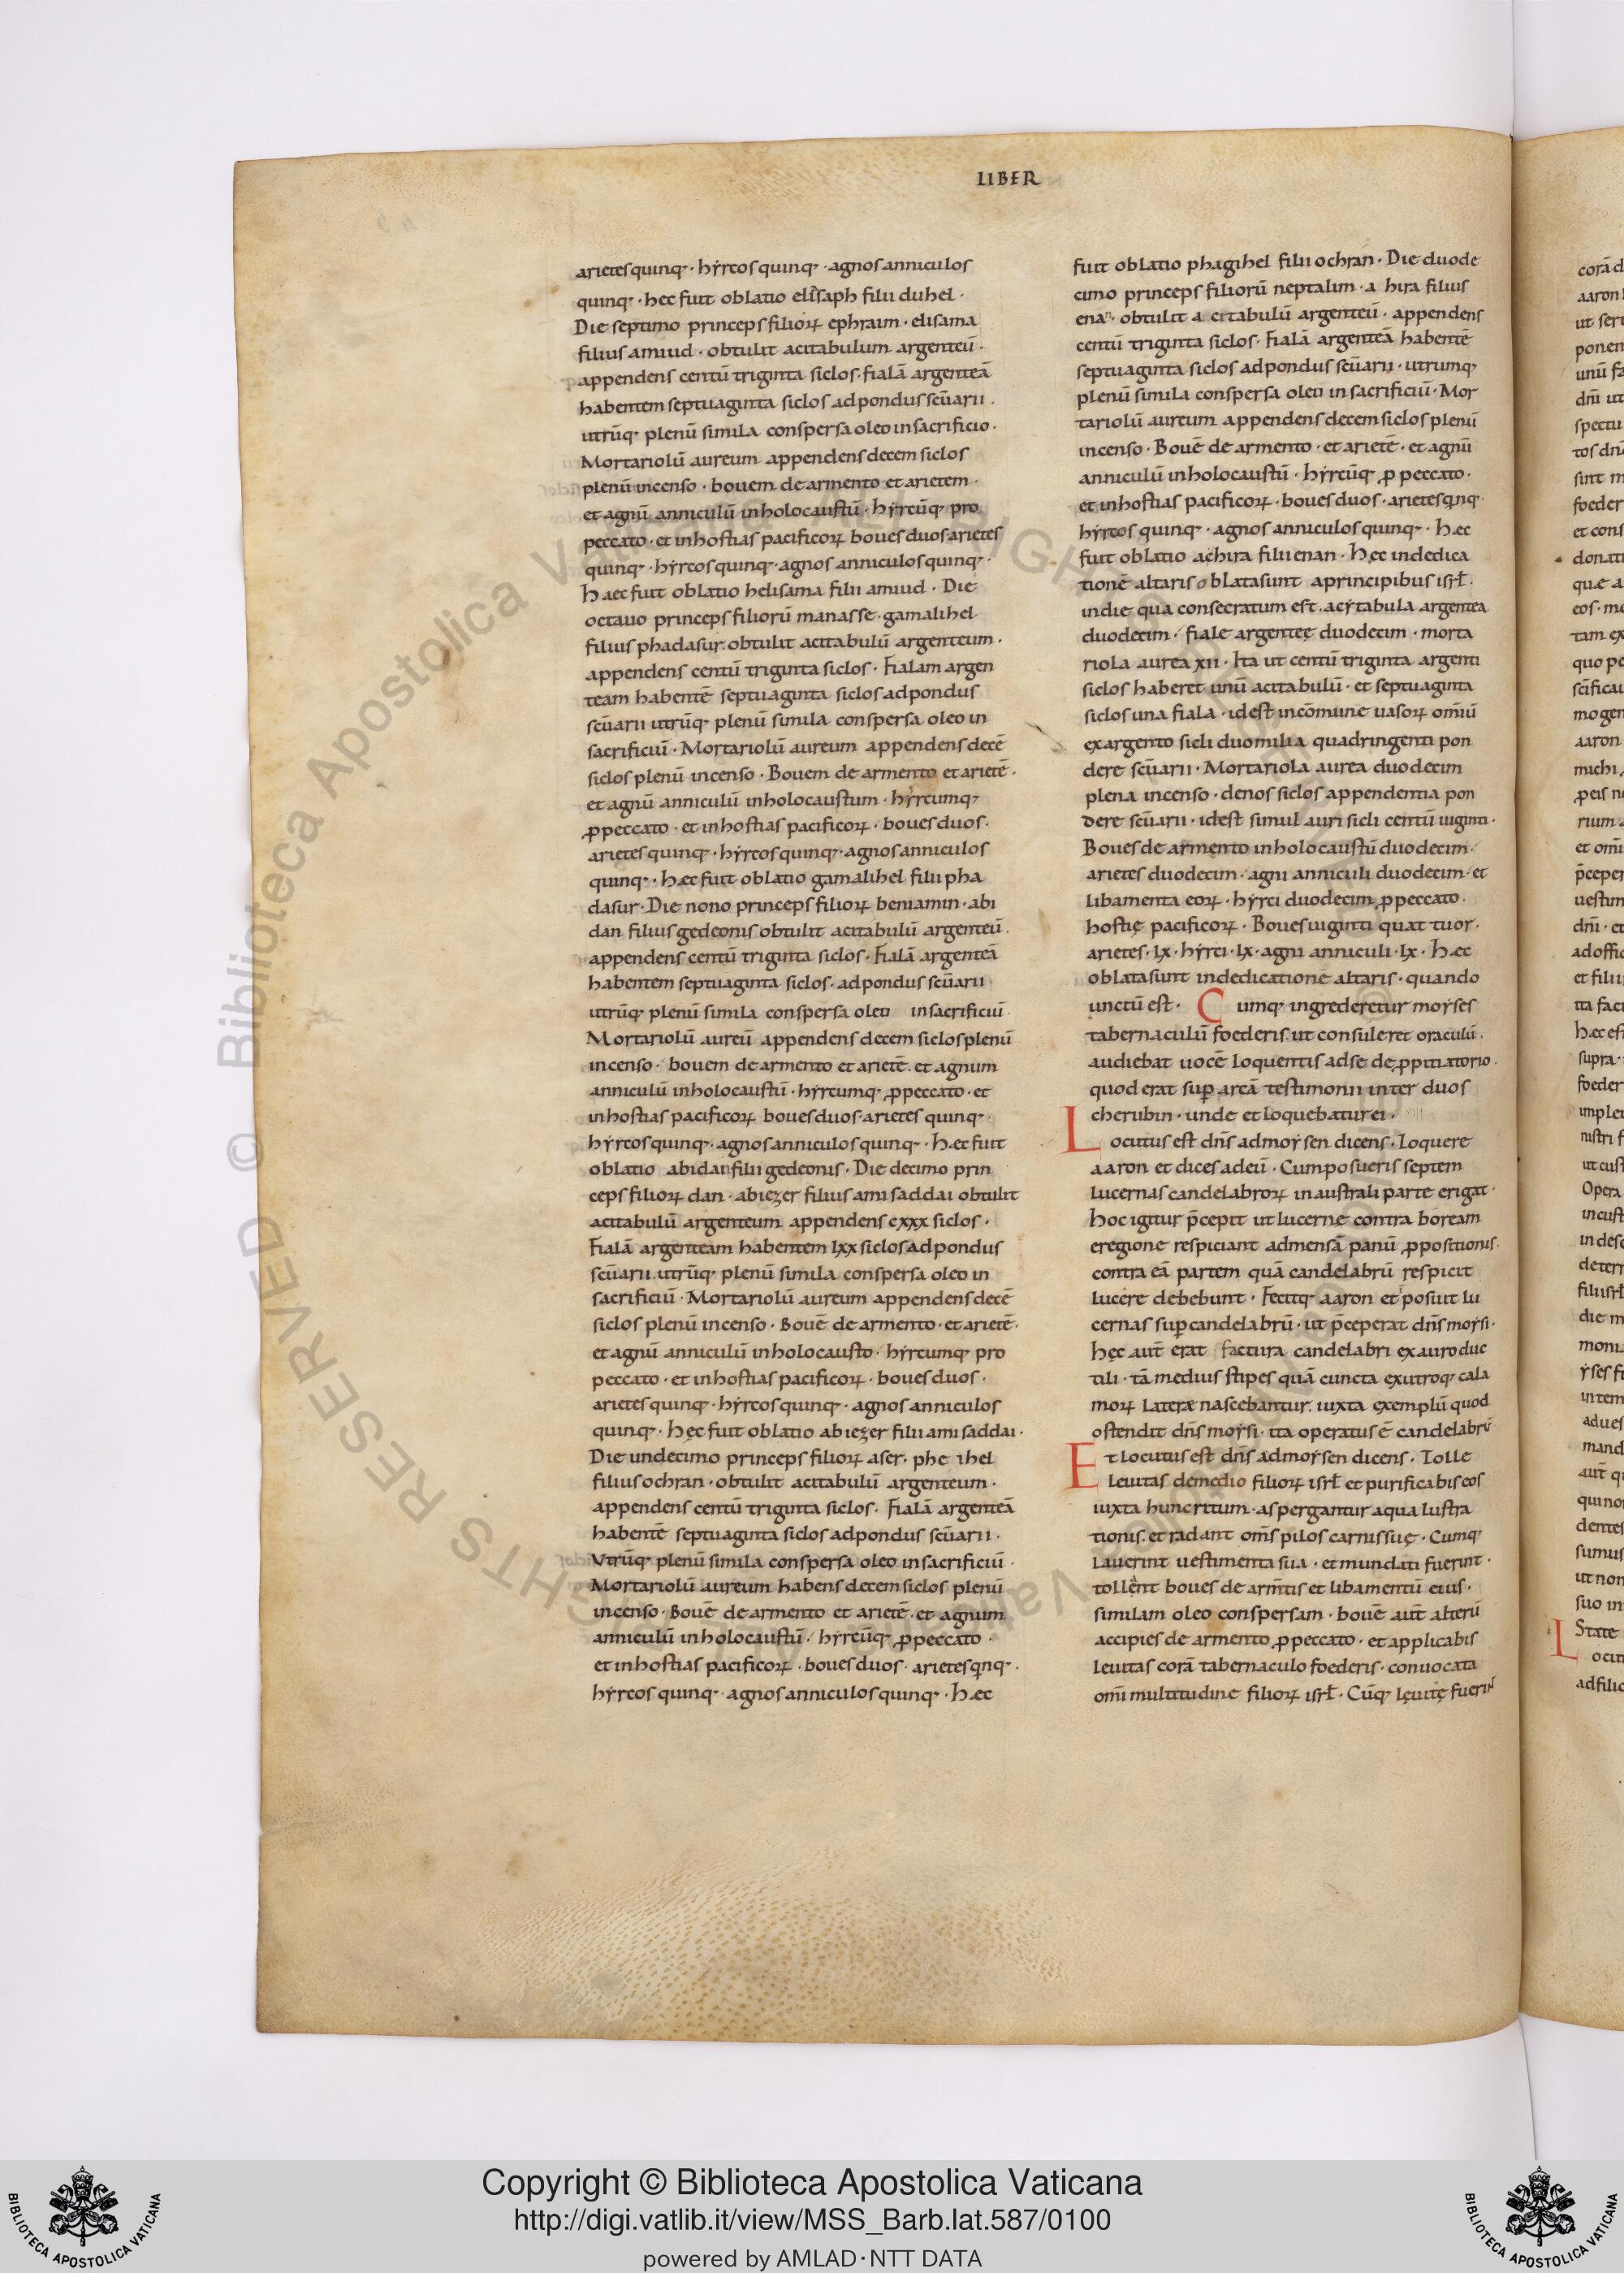 LIBER
arietes quinq; · hẏrcos quinq; · agnos anniculos
quinq; · hec fuit oblatio elisaph filii duhel ·
Die septimo princeps filioꝝ ephraim · elisama
filius amiud · obtulit acitabulum argenteū ·
appendens centū triginta siclos · fialā argenteā
habentem septuaginta siclos ad pondus scūarii ·
utrūq; plenū simila conspersa oleo in sacrificio ·
Mortariolū aureum appendens decem siclos
plenū incenso · bouem de armento et arietem ·
et agnū anniculū in holocaustū · hẏrcūq; pro
peccato · et in hostias pacificoꝝ boues duos · arietes
quinq; · hẏrcos quinq; · agnos anniculos quinq; ·
Haec fuit oblatio helisama filii amiud · Die
octauo princeps filiorū manasse · gamalihel
filius phadasur · obtulit acitabulū argenteum ·
appendens centū triginta siclos · Fialam argen
team habentē septuaginta siclos ad pondus
scūarii utrūq; plenū simila conspersa oleo in
sacrificiū · Mortariolū aureum appendens decē
siclos plenū incenso · Bouem de armento et arietē ·
et agnū anniculū in holocaustum · hẏrcumq;
ꝓ peccato · et in hostias pacificoꝝ · boues duos ·
arietes quinq; · hẏrcos quinq; · agnos anniculos
quinq; · Hæc fuit oblatio gamalihel filii pha
dasur · Die nono princeps filioꝝ beniamin · abi
dan filius gedeonis obtulit acitabulū argenteū ·
appendens centū triginta siclos · Fialā argenteā
habentem septuaginta siclos · ad pondus scūarii
utrūq; plenū simila conspersa oleo in sacrificiū ·
Mortariolū aureū appendens decem siclos plenū
incenso · bouem de armento et arietē · et agnum
anniculū in holocaustū · hẏrcumq; ꝓ peccato · et
in hostias pacificoꝝ boues duos · arietes quinq; ·
hẏrcos quinq; · agnos anniculos quinq; · Hæc fuit
oblatio abidan filii gedeonis · Die decimo prin
ceps filioꝝ dan · abiezer filius amisaddai obtulit
acitabulū argenteum appendens cxxx siclos ·
Fialā argenteam habentem lxx siclos ad pondus
scūarii · utrūq; plenū simila conspersa oleo in
sacrificiū · Mortariolū aureum appendens decē
siclos plenū incenso · Bouē de armento · et arietē ·
et agnū anniculū in holocausto · hẏrcumq; pro
peccato · et in hostias pacificoꝝ · boues duos ·
arietes quinq; · hẏrcos quinq; · agnos anniculos
quinq; · Hęc fuit oblatio abiezer filii amisaddai ·
Die undecimo princeps filioꝝ aser · phe ihel
filius ochran · obtulit acitabulū argenteum ·
appendens centū triginta siclos · Fialā argenteā
habentē septuaginta siclos ad pondus scūarii ·
Vtrūq; plenū simila conspersa oleo in sacrificiū ·
Mortariolū aureum habens decem siclos plenū
incenso · Bouē de armento et arietē · et agnum
anniculū in holocaustū · hẏrcūq; ꝓ peccato ·
et in hostias pacificoꝝ · boues duos · arietes qnq; ·
hẏrcos quinq; · agnos anniculos quinq; · Hæc
fuit oblatio phagihel filii ochran · Die duode
cimo princeps filiorū neptalim · a hira filius
enan · obtulit a citabulū argenteū · appendens
centū triginta siclos · Fialā argenteā habentē
septuaginta siclos ad pondus scūarii · utrumq;
plenū simila conspersa oleo in sacrificiū · Mor
tariolū aureum appendens decem siclos plenū
incenso · Bouē de armento · et arietē · et agnū
anniculū in holocaustū · hẏrcūq; ꝓ peccato ·
et in hostias pacificoꝝ · boues duos · arietes qnq; ·
hẏrcos quinq; · agnos anniculos quinq; · Hæc
fuit oblatio achira filii enan · Hęc in dedica
tionē altaris oblata sunt a principibus isrł ·
in die qua consecratum est · acẏtabula argentea
duodecim · fiale argenteę duodecim · morta
riola aurea xii · Ita ut centū triginta argenti
siclos haberet unū acitabulū · et septuaginta
siclos una fiala · idest incōmune uasoꝝ omīū
ex argento sicli duo milia quadringenti pon
dere scūarii · Mortariola aurea duodecim
plena incenso · denos siclos appendentia pon
dere scūarii · idest simul auri sicli centū uiginti ·
Boues de armento in holocaustū duodecim ·
arietes duodecim · agni anniculi duodecim · et
libamenta eoꝝ · hẏrci duodecim ꝓ peccato ·
hostię pacificoꝝ · Boues uiginti quat tuor ·
arietes · lx · hẏrci · lx · agni anniculi · lx · Hæc
oblata sunt in dedicatione altaris · quando
unctū est · Cumq; ingrederetur moẏses
tabernaculū foederis ut consuleret oraculū ·
audiebat uocē loquentis ad se de ꝓpitiatorio ·
quod erat suꝑ arcā testimonii inter duos
cherubin · unde et loquebatur ei ·
Locutus est dn̄s ad moẏsen dicens · Loquere
aaron et dices ad eū · Cum posueris septem
lucernas candelabroꝝ in australi parte erigat ·
hoc igitur p̄cepit ut lucerne contra boream
e regione respiciant ad mensā panū ꝓpositionis ·
contra eā partem quā candelabrū respicit
lucere debebunt · Fecitq; aaron et posuit lu
cernas suꝑ candelabrū · ut p̄ceperat dn̄s moẏsi ·
hęc aut̄ erat factura candelabri ex auro duc
tili · tā medius stipes quā cuncta ex utroq; cala
moꝝ latere nascebantur · iuxta exemplū quod
ostendit dn̄s moẏsi · ita operatus ē candelabrū
Et locutus est dn̄s ad moẏsen dicens · Tolle
leuitas de medio filioꝝ isrł et purificabis eos
iuxta hunc ritum · aspergantur aqua lustra
tionis · et radant om̄s pilos carnis suę · Cumq;
lauerint uestimenta sua · et mundati fuerint ·
tollent boues de arm̄tis et libamentū eius ·
similam oleo conspersam · bouē aut̄ alterū
accipies de armento ꝓ peccato · et applicabis
leuitas corā tabernaculo foederis · conuocata
om̄i multitudine filioꝝ isrł · Cūq; leuitę fuerint
corā d
aaron
ut ser
ponen
unū fa
dn̄i ut
spectu
tos dn̄
sint m
foeder
et cons
donati
quæ a
eos · me
tam ex
quo pe
scīficau
mo gen
aaron
michi
ꝓ eis n
rium a
et om̄i
p̄ceper
uestim
dn̄i · et
ad offic
et filii
ita fact
Hæc est
supra
foeder
impleu
nistri f
ut cust
Opera
in cust
in dese
deterr
filii isrł
die m
moni
ẏses f
in tem
ad ues
mand
aut̄ qu
qui no
dentes
sumus
ut non
suo in
State
Locut
ad filio
© Biblioteca Apostolica Vaticana ALL RIGHTS RESERVED
Copyright © Biblioteca Apostolica Vaticana
http://digi.vatlib.it/view/MSS_Barb.lat.587/0100
powered by AMLAD·NTT DATA
BIBLIOTECA APOSTOLICA VATICANA
BIBLIOTECA APOSTOLICA VATICANA